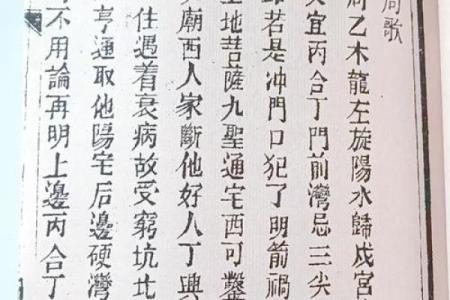 局歌
乙木龍左旋陽水歸戍宮
宜丙合丁門前灣忌三尖
若是冲門口犯了明箭禍
地菩薩九聖通宅西可鑿
廟西人家斷他好人丁興
住遇着衰病故受窮坑北
亨通取他陽宅后邊硬灣
不用論再明上邊丙合丁